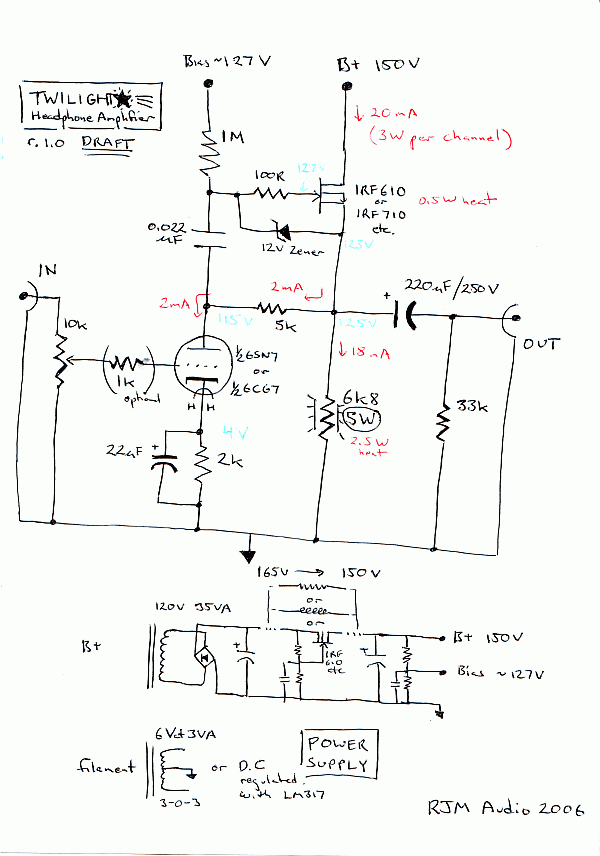 Bias ~127V
B+ 150V
TWILIGHT
Headphone Amplifier
r. 1.0 DRAFT
20mA
(3W per channel)
1M
100R
127V
IRF610
or
IRF710
etc.
0.5W heat
0.022
uF
12V Zener
125V
IN
2mA
2mA
220uF/250V
10k
115V
5k
125V
OUT
18mA
1k
optional
½6SN7
or
½6CG7
H H
6k8
5W
2.5W
heat
33k
4V
22uF
2k
165V → 150V
or
or
120V 35VA
B+
IRF
610
etc
B+ 150V
Bias ~127V
6Vct 3VA
filament
3-0-3
or D.C
regulated
with LM317
POWER
SUPPLY
RJM Audio 2006